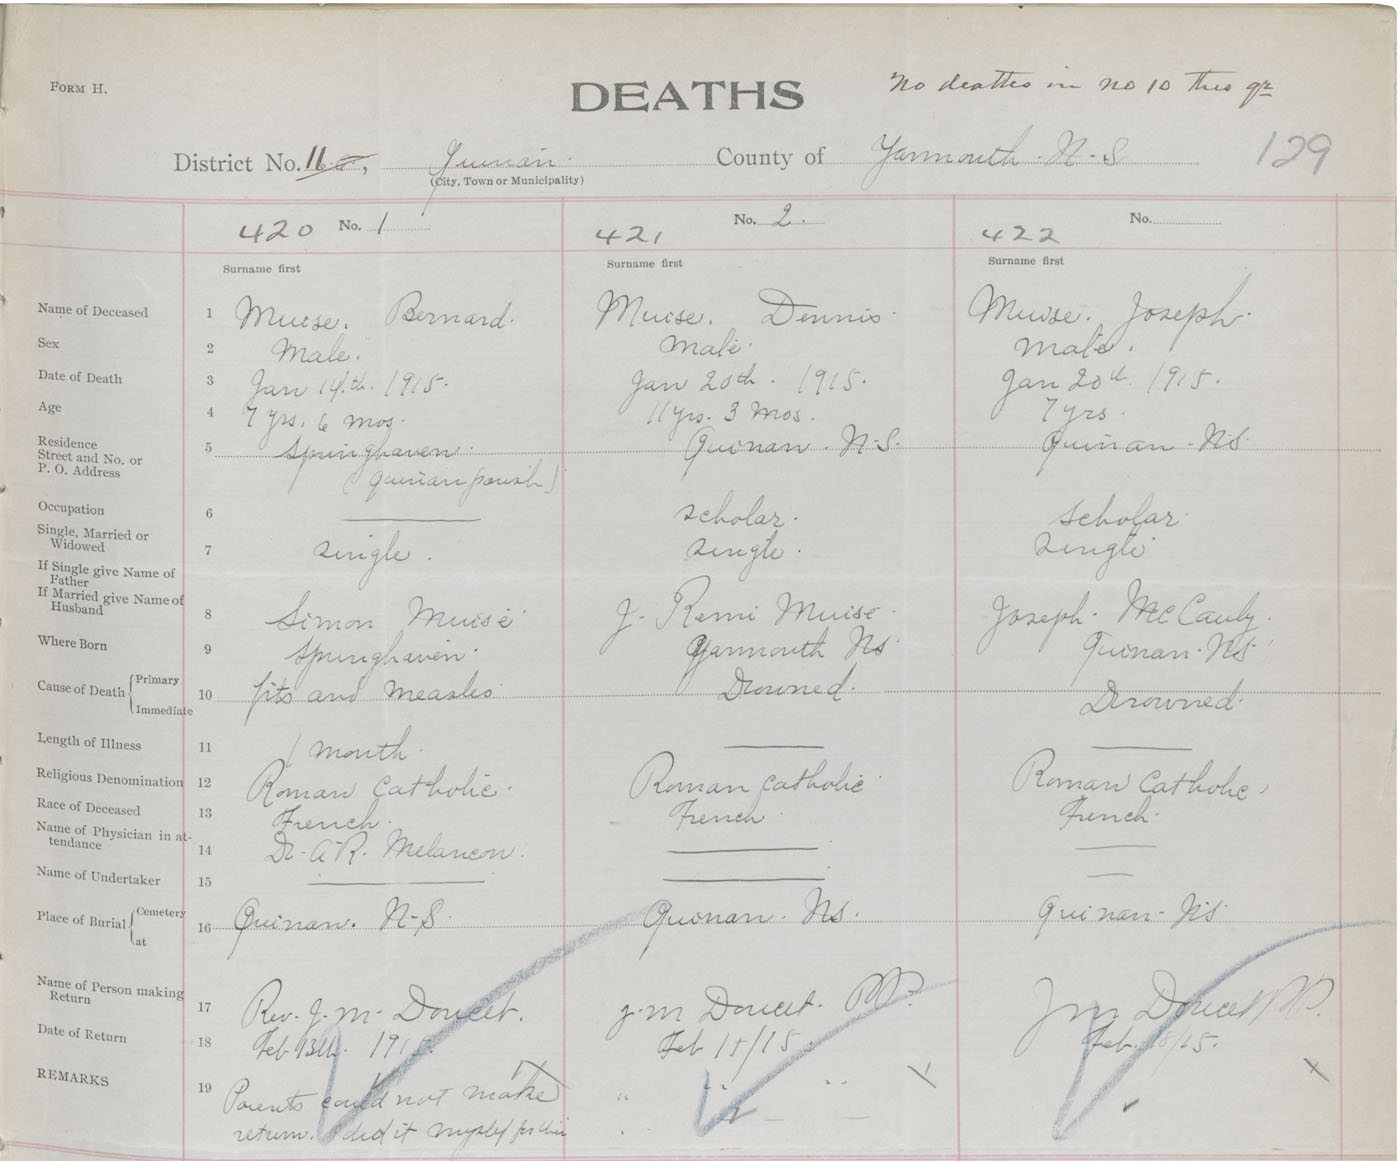 FORM H.
DEATHS
No deaths in no 10 this qr
District No. 11 Quinan County of Yarmouth N-S 129
(City, Town or Municipality)
420 No. 1 421 No. 2. 422 No.
Surname first Surname first Surname first
Name of Deceased 1 Muise. Bernard. Muise. Dennis. Muise. Joseph.
Sex 2 Male. male. male.
Date of Death 3 Jan 14th. 1915. Jan 20th. 1915. Jan 20th 1915.
Age 4 7 yrs. 6 mos. 11 yrs. 3 mos. 7 yrs.
Residence
Street and No. or 5 Springhaven. Quinan. N-S. Quinan - NS
P. O. Address (Quinan parish)
Occupation 6 scholar. scholar.
Single, Married or
Widowed 7 single. single. single
If Single give Name of
Father
If Married give Name of
Husband 8 Simon Muise J. Remi Muise. Joseph. McCauly.
Where Born 9 Springhaven. Yarmouth NS Quinan. NS
Cause of Death { Primary
10 fits and measles Drowned. Drowned.
Immediate
Length of Illness 11 1 month.
Religious Denomination 12 Roman Catholic. Roman Catholic Roman Catholic
Race of Deceased 13 French. French French.
Name of Physician in at-
tendance 14 Dr. A-R. Melancon.
Name of Undertaker 15
Place of Burial { Cemetery
16 Quinan. N-S. Quinan. NS. Quinan - NS
at
Name of Person making
Return 17 Rev. J. M. Doucet. J. M Doucet. PP. J M Doucet PP.
Date of Return 18 Feb 13th. 1915. Feb 15/15. Feb. /15.
REMARKS 19 Parents could not make " " "
return. I did it myself for